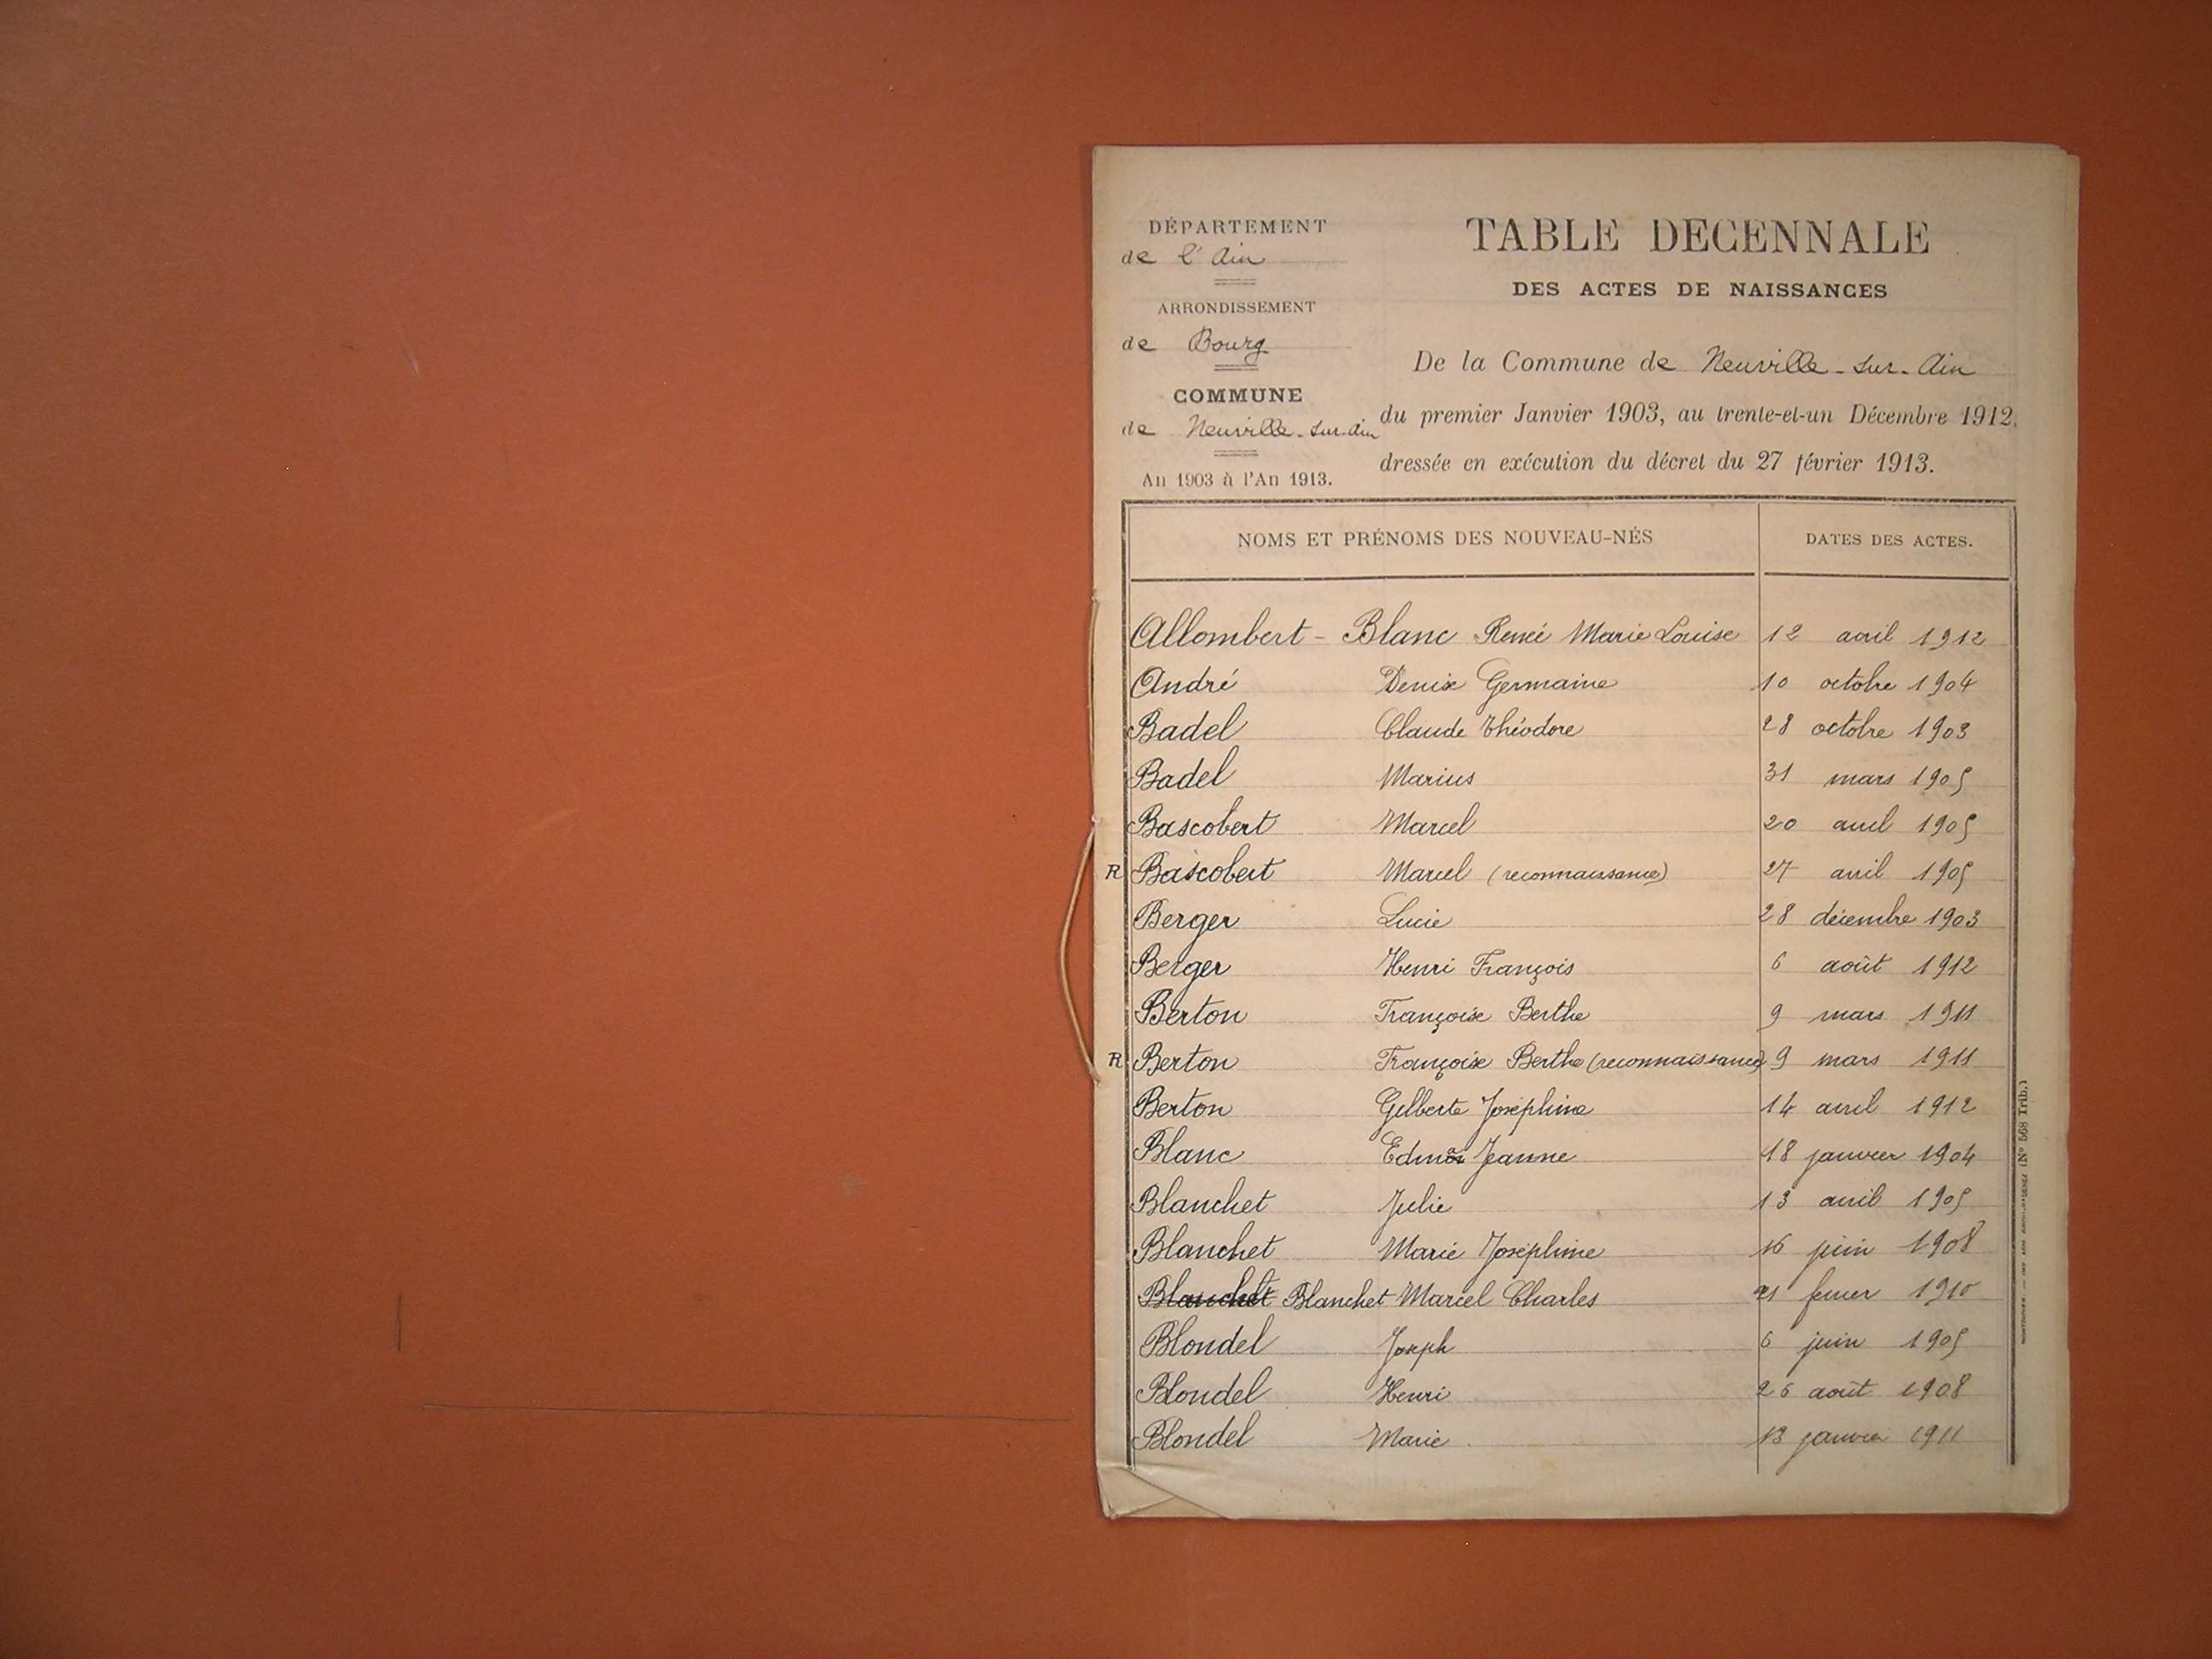 DÉPARTEMENT
de l'Ain
ARRONDISSEMENT
de Bourg
COMMUNE
de Neuville-sur-Ain
An 1903 à l'An 1913.
TABLE DECENNALE
DES ACTES DE NAISSANCES
De la Commune de Neuville-sur-Ain
du premier Janvier 1903, au trente-et-un Décembre 1912,
dressée en exécution du décret du 27 février 1913.
NOMS ET PRÉNOMS DES NOUVEAU-NÉS DATES DES ACTES.
Allombert-Blanc Renée Marie Louise 12 avril 1912
André Denise Germaine 10 octobre 1904
Badel Claude Théodore 28 octobre 1903
Badel Marius 31 mars 1905
Bascobert Marcel 20 avril 1905
R Bascobert Marcel (reconnaissance) 27 avril 1905
Berger Lucie 28 décembre 1903
Berger Henri François 6 août 1912
Berton Françoise Berthe 9 mars 1911
R Berton Françoise Berthe (reconnaissance) 9 mars 1911
Berton Gilberte Joséphine 14 avril 1912
Blanc Edma Jeanne 18 janvier 1904
Blanchet Julie 13 avril 1905
Blanchet Marie Joséphine 16 juin 1908
Blanchet Blanchet Marcel Charles 21 février 1910
Blondel Joseph 6 juin 1905
Blondel Henri 26 août 1908
Blondel Marie 13 janvier 1911
(N° 568 Trib.)